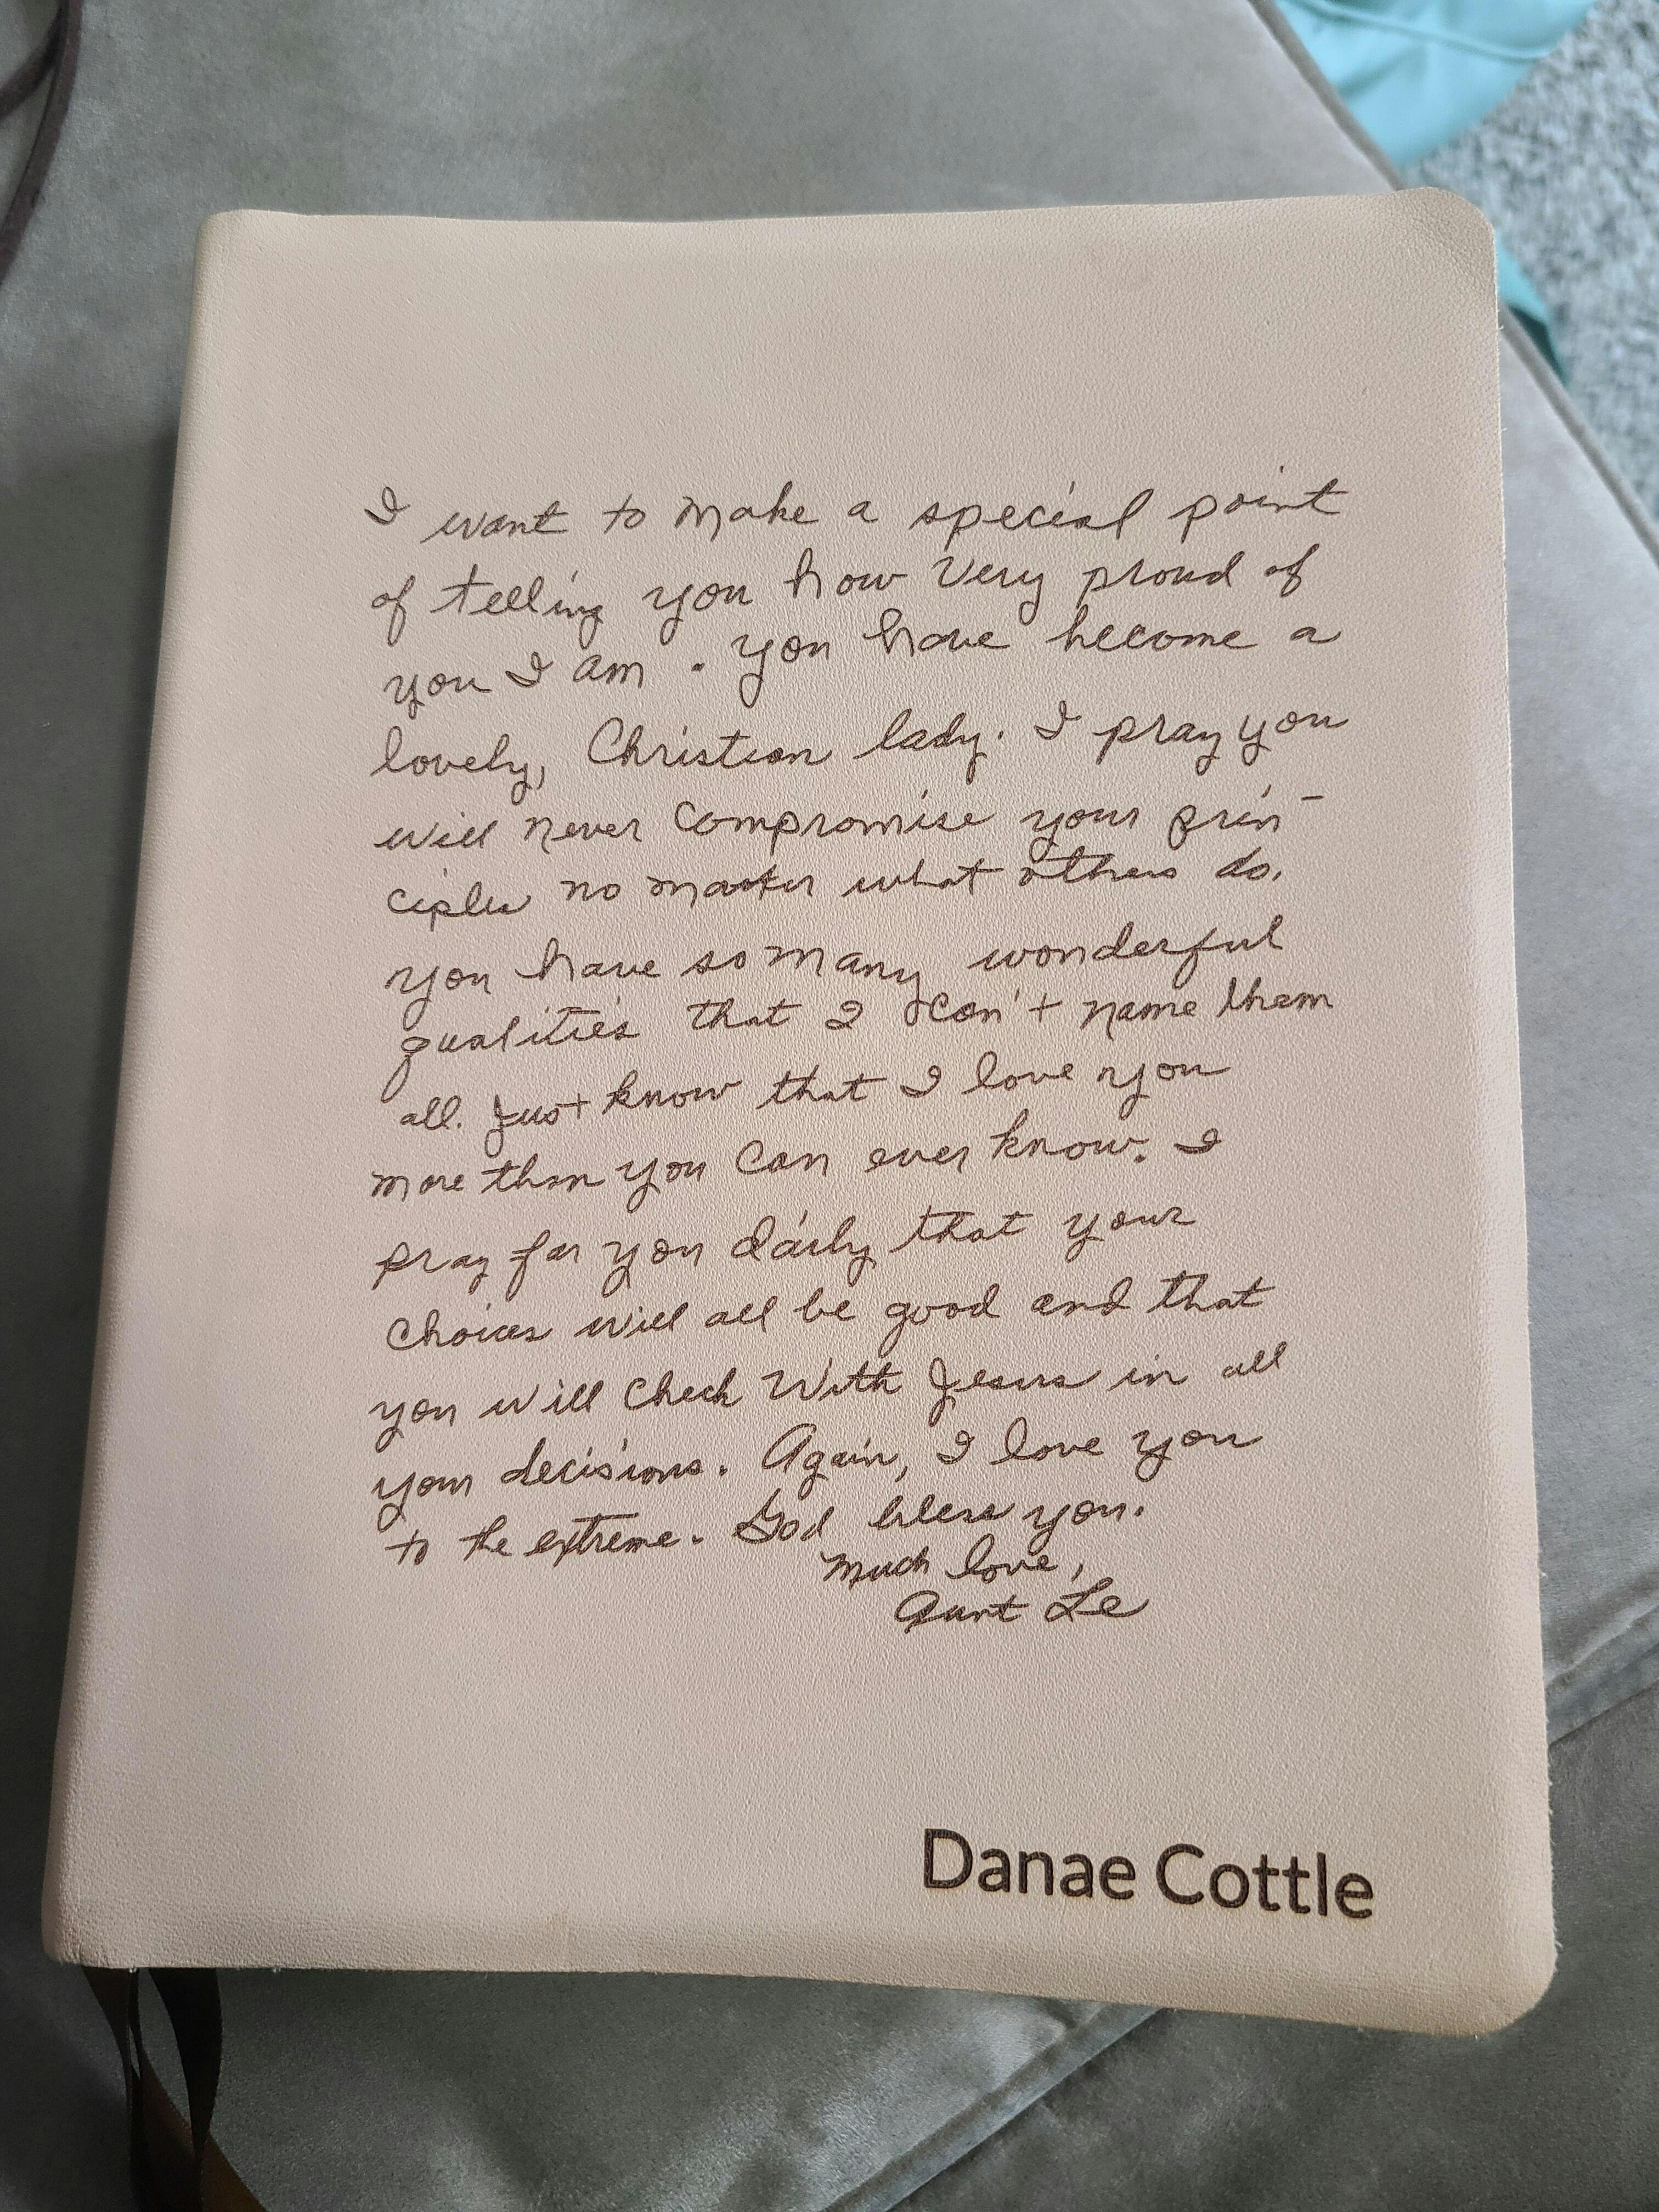 I want to make a special point
of telling you how very proud of
you I am. You have become a
lovely, Christian lady. I pray you
will never compromise your prin-
ciples no matter what others do.
You have so many wonderful
qualities that I can't name them
all. Just know that I love you
more than you can ever know. I
pray for you daily that your
choices will all be good and that
you will check with Jesus in all
your decisions. Again, I love you
to the extreme. God bless you.
Much love,
Aunt Le
Danae Cottle